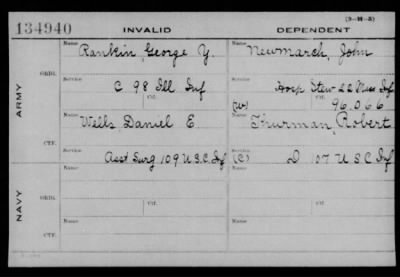 (3-H-5)
134940 INVALID DEPENDENT
Name Name
Rankin George Y. Newmarch, John
ORIG. Service Service
C 98 Ill Inf Hosp Stew 22 Inf
Ctf. (W) Ctf. 96.066
ARMY
Name Name
Wells, Daniel E Thurman, Robert
CTF.
Service Service
Asst Surg 109 U.S.C. Inf (C) D 107 U S C Inf
Name Name
NAVY
ORIG.
Ctf. Ctf.
Name Name
CTF.